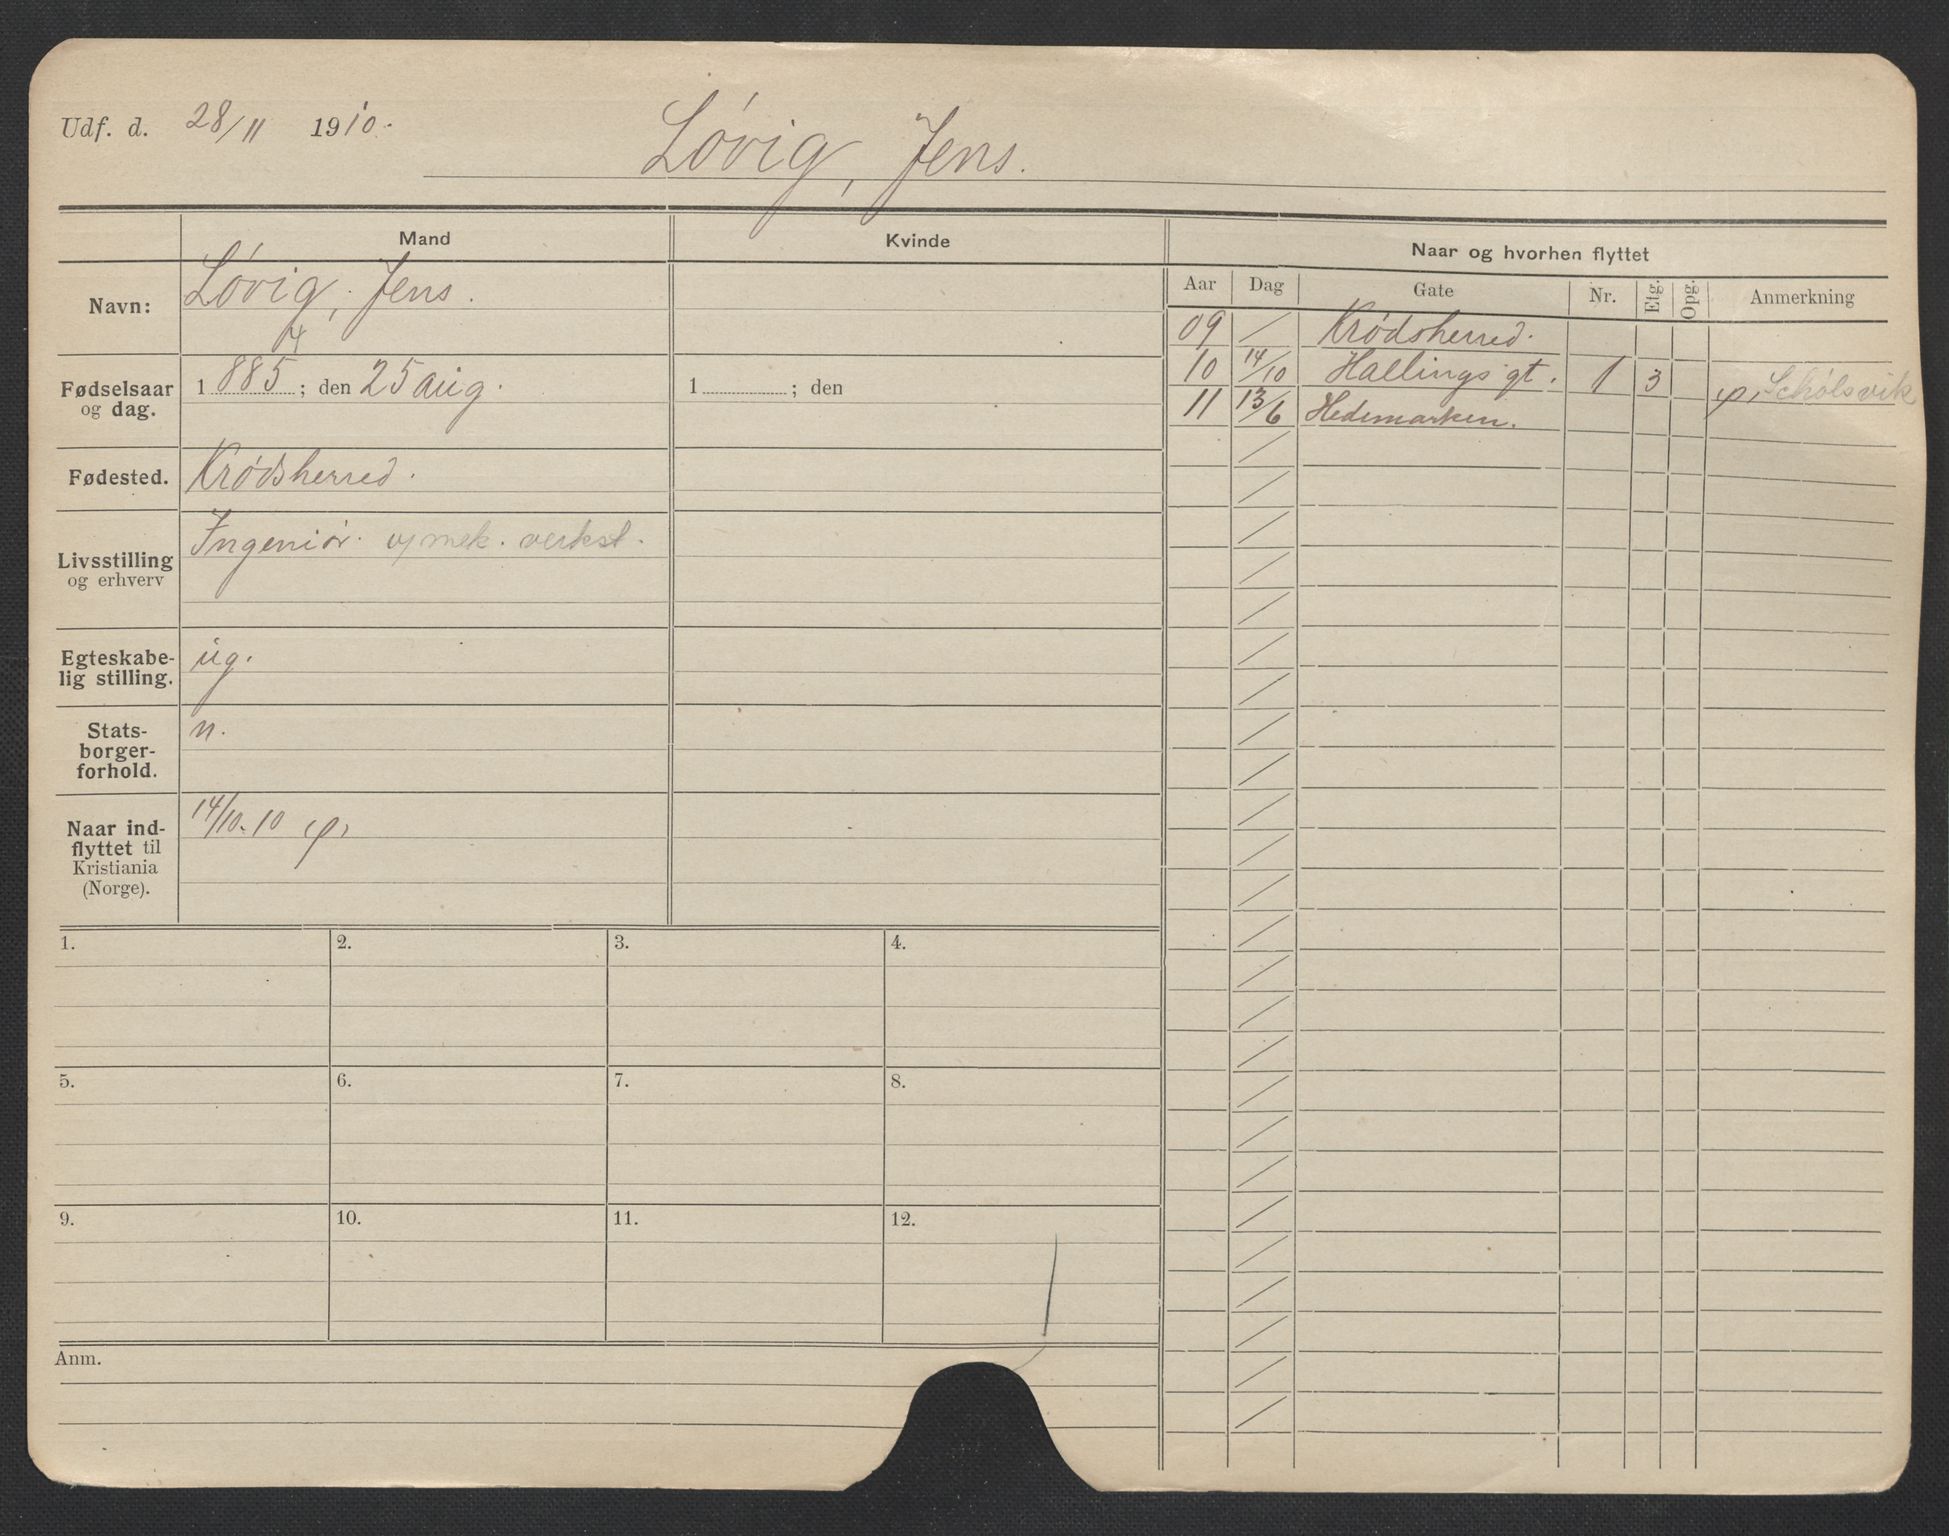 Udf. d. 28/11 1910.
Løvig, Jens.
Mand
Kvinde
Naar og hvorhen flyttet
Navn:
Løvig, Jens.
Aar Dag Gate Nr. Etg. Opg. Anmerkning
09 / Krødsherred.
10 14/10 Hallings gt. 1 3
11 13/6 Hedemarken.
Fødselsaar
og dag.
1885; den 25 aug.
1 ; den
Fødested.
Krødsherred.
Livsstilling
og erhverv
Ingeniør. mek. verkst.
Egteskabe-
lig stilling.
ug.
Stats-
borger-
forhold.
n.
Naar ind-
flyttet til
Kristiania
(Norge).
14/10.10
1. 2. 3. 4.
5. 6. 7. 8.
9. 10. 11. 12.
Anm.